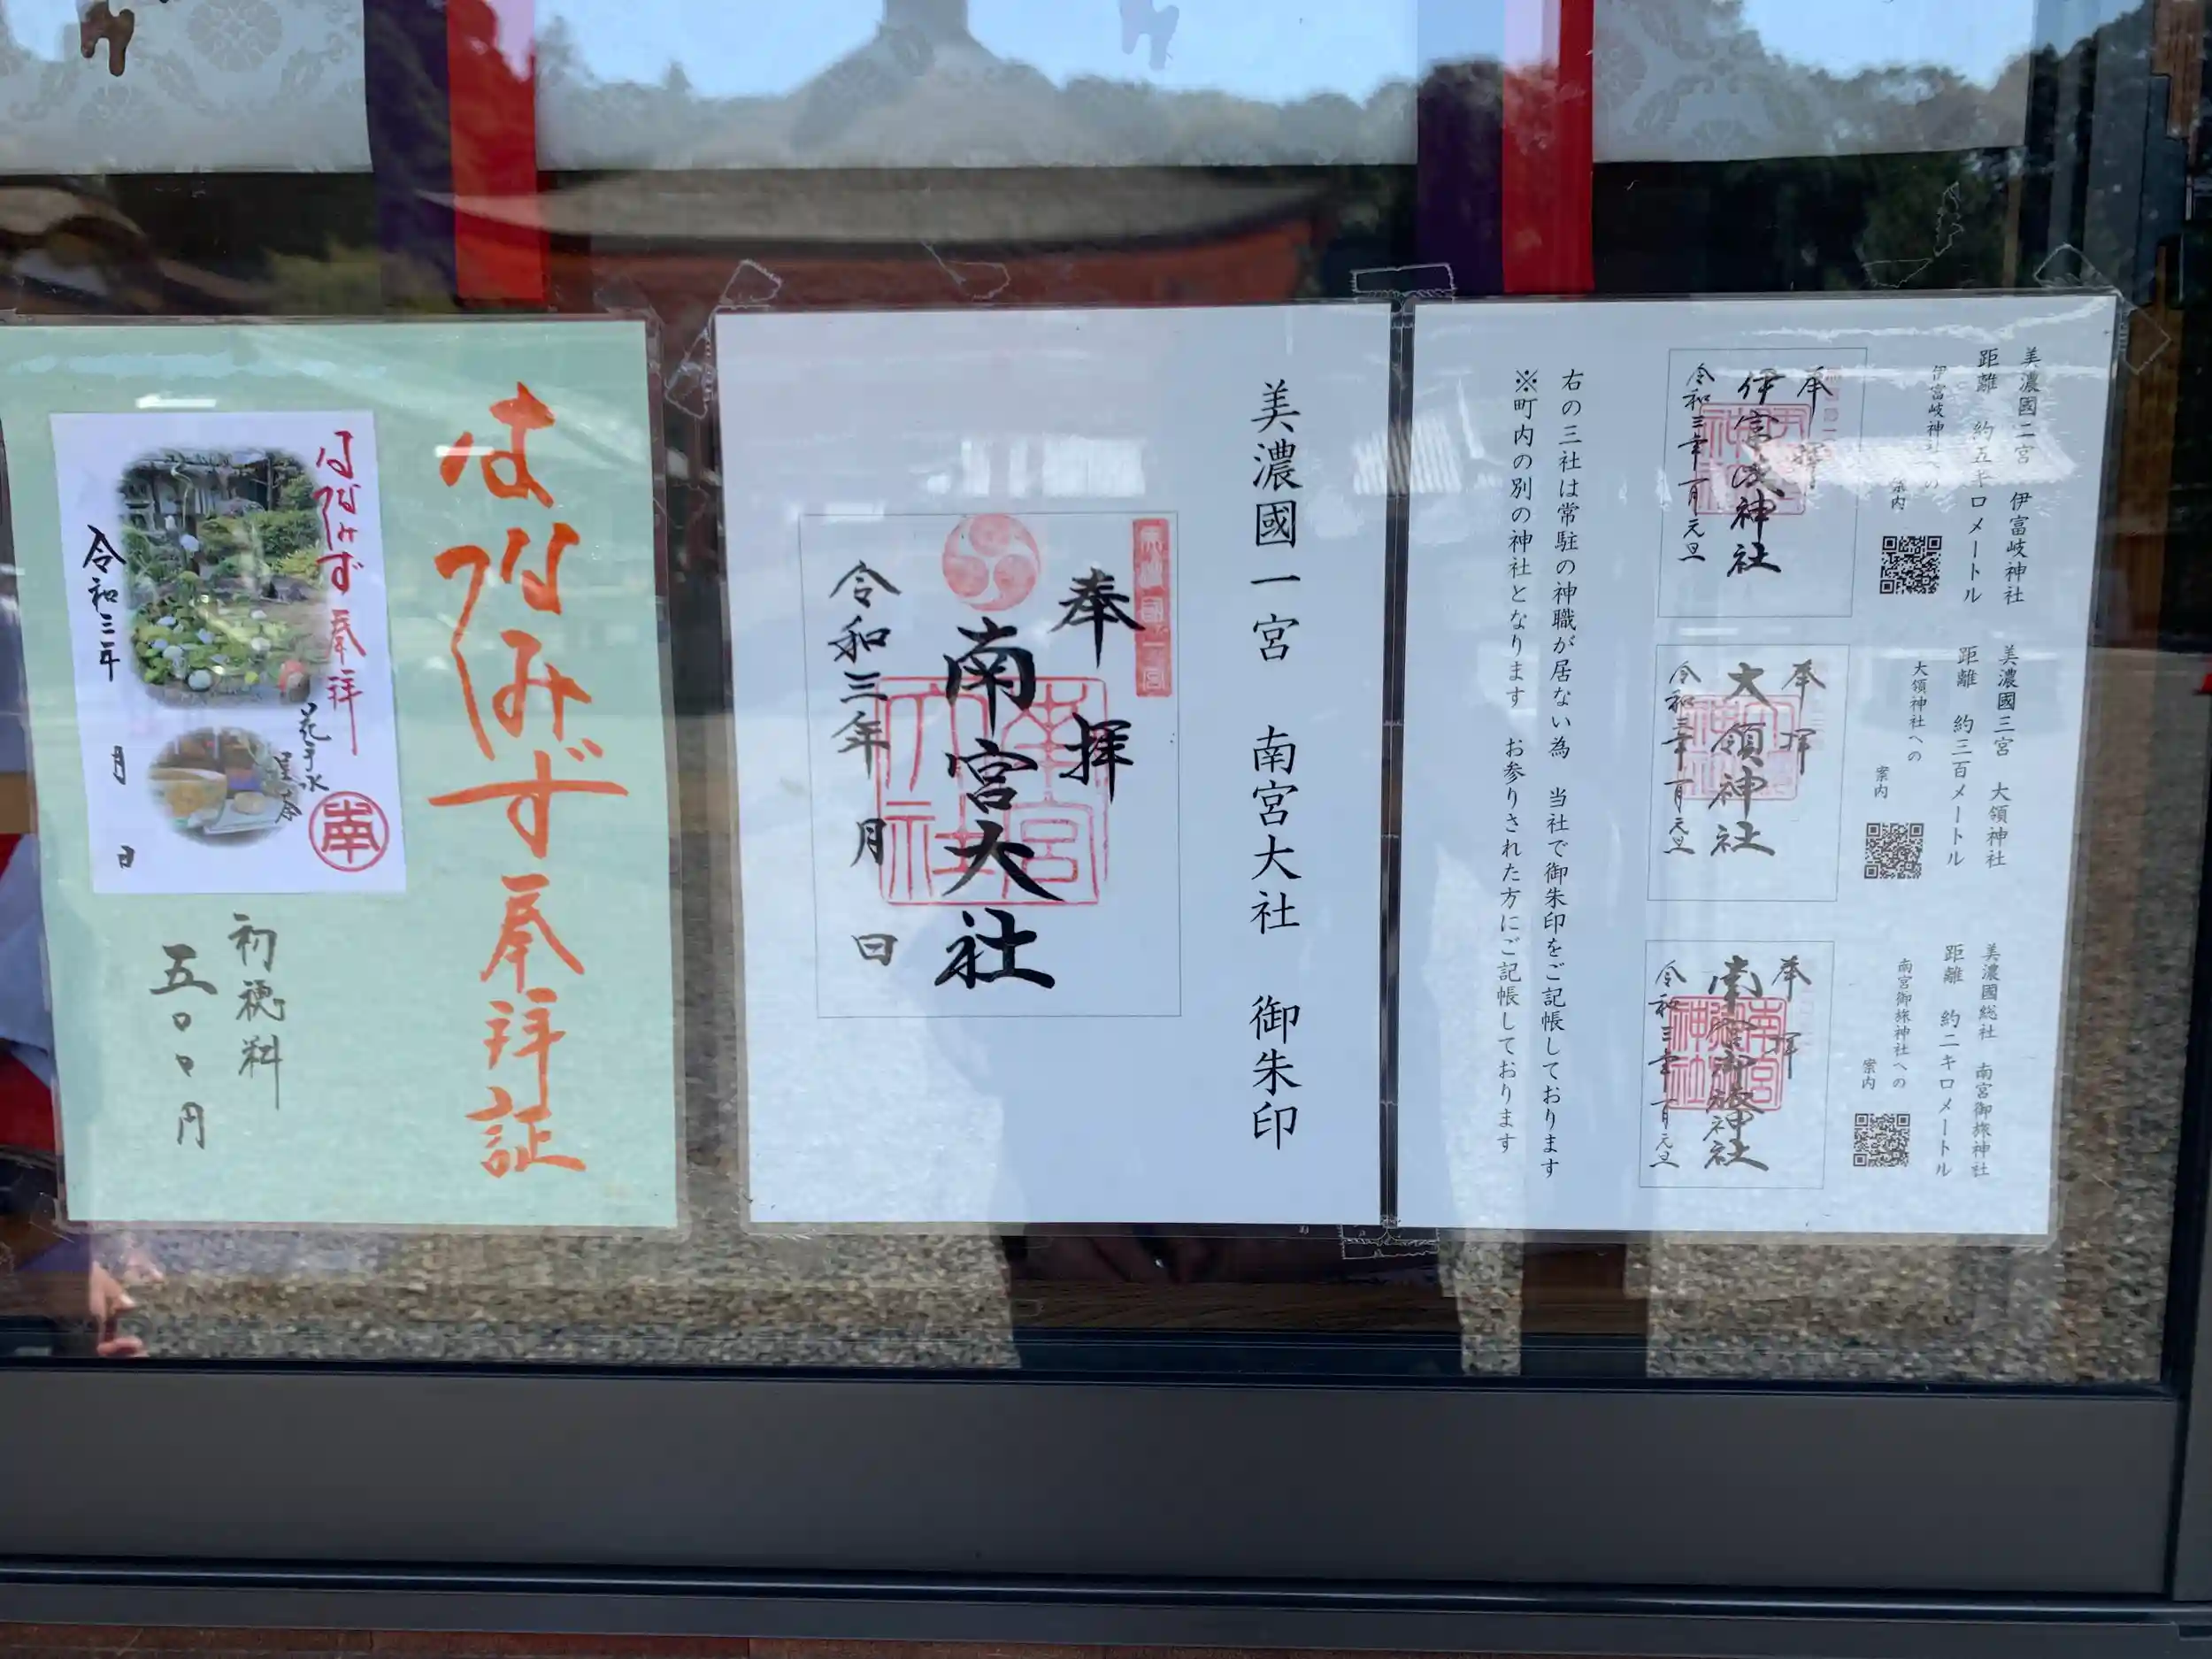 美濃國二宮 伊富岐神社
距離 約五キロメートル
伊富岐神社への
案内
奉拝
伊富岐神社
令和三年一月元旦
美濃國三宮 大領神社
距離 約三百メートル
大領神社への
案内
奉拝
大領神社
令和三年一月元旦
美濃國総社 南宮御旅神社
距離 約二キロメートル
南宮御旅神社への
案内
奉拝
南宮御旅神社
令和三年一月元旦
右の三社は常駐の神職が居ない為 当社で御朱印をご記帳しております
※町内の別の神社となります お参りされた方にご記帳しております
美濃國一宮 南宮大社 御朱印
美濃國一宮
奉拝
南宮大社
南宮大社
令和三年 月 日
はなみず奉拝証
はなみず奉拝
花手水
南
令和三年 月 日
初穂料
五〇〇円